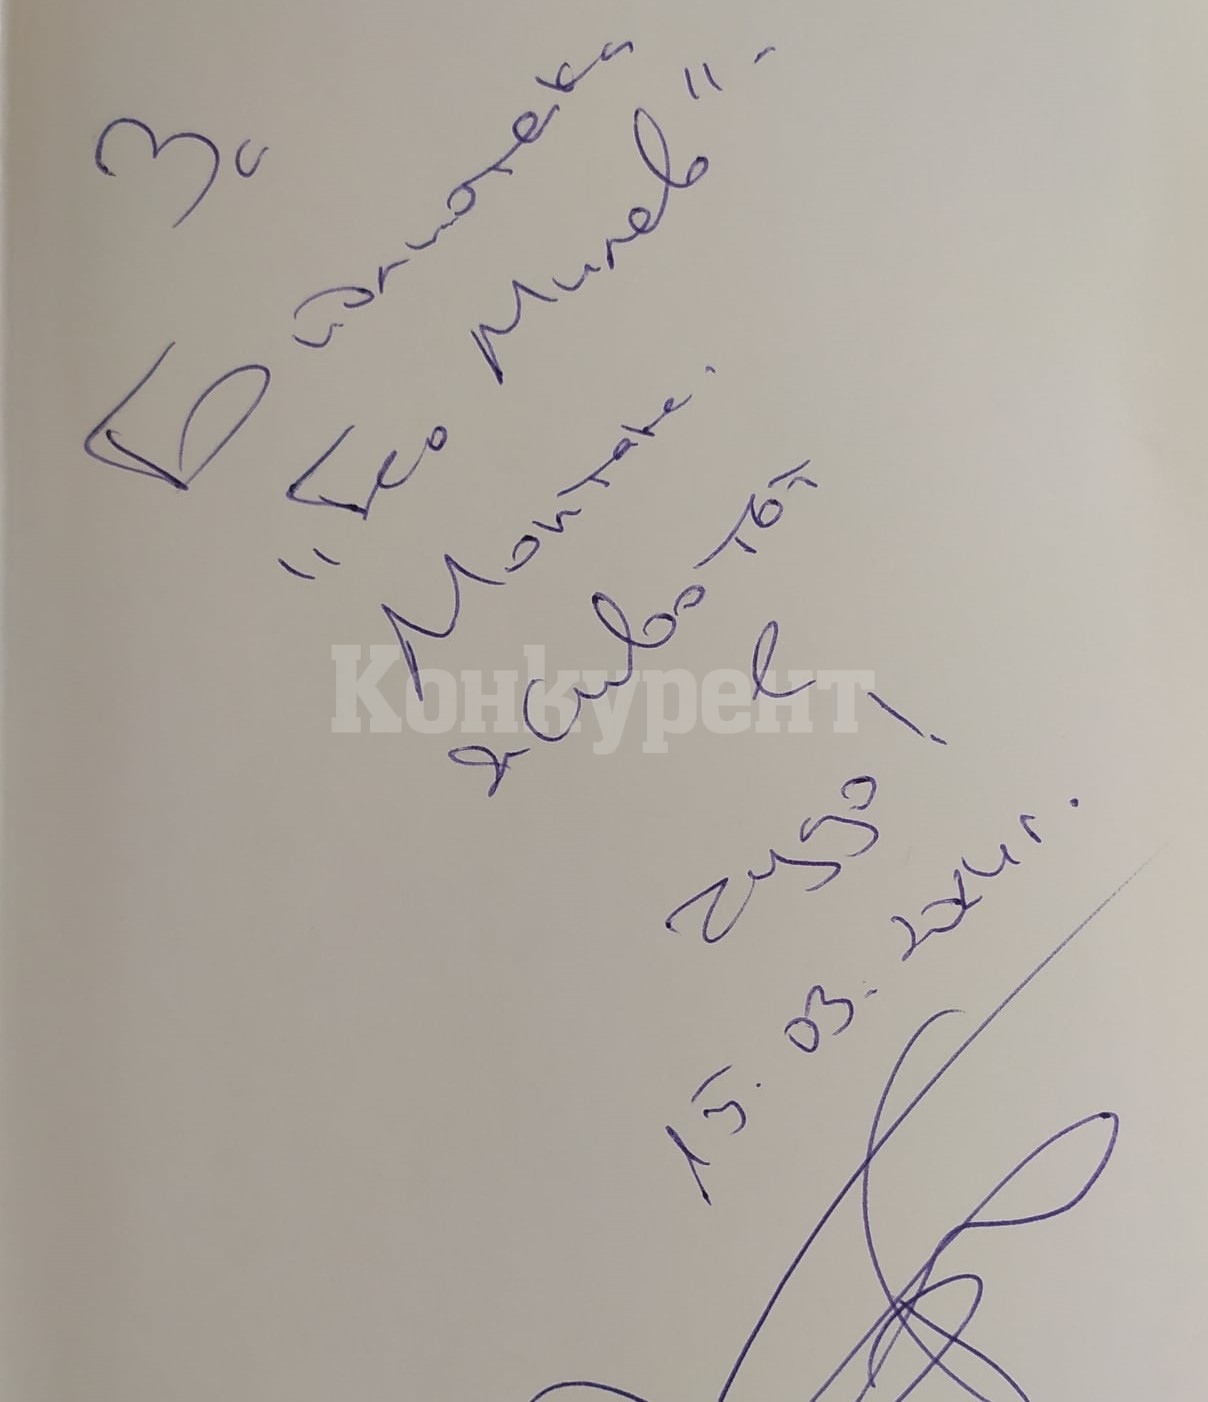 За
Библиотека
"Гео Милев" -
Монтана.
Животът
е
чудо!
15.03.2024г.
Конкурент